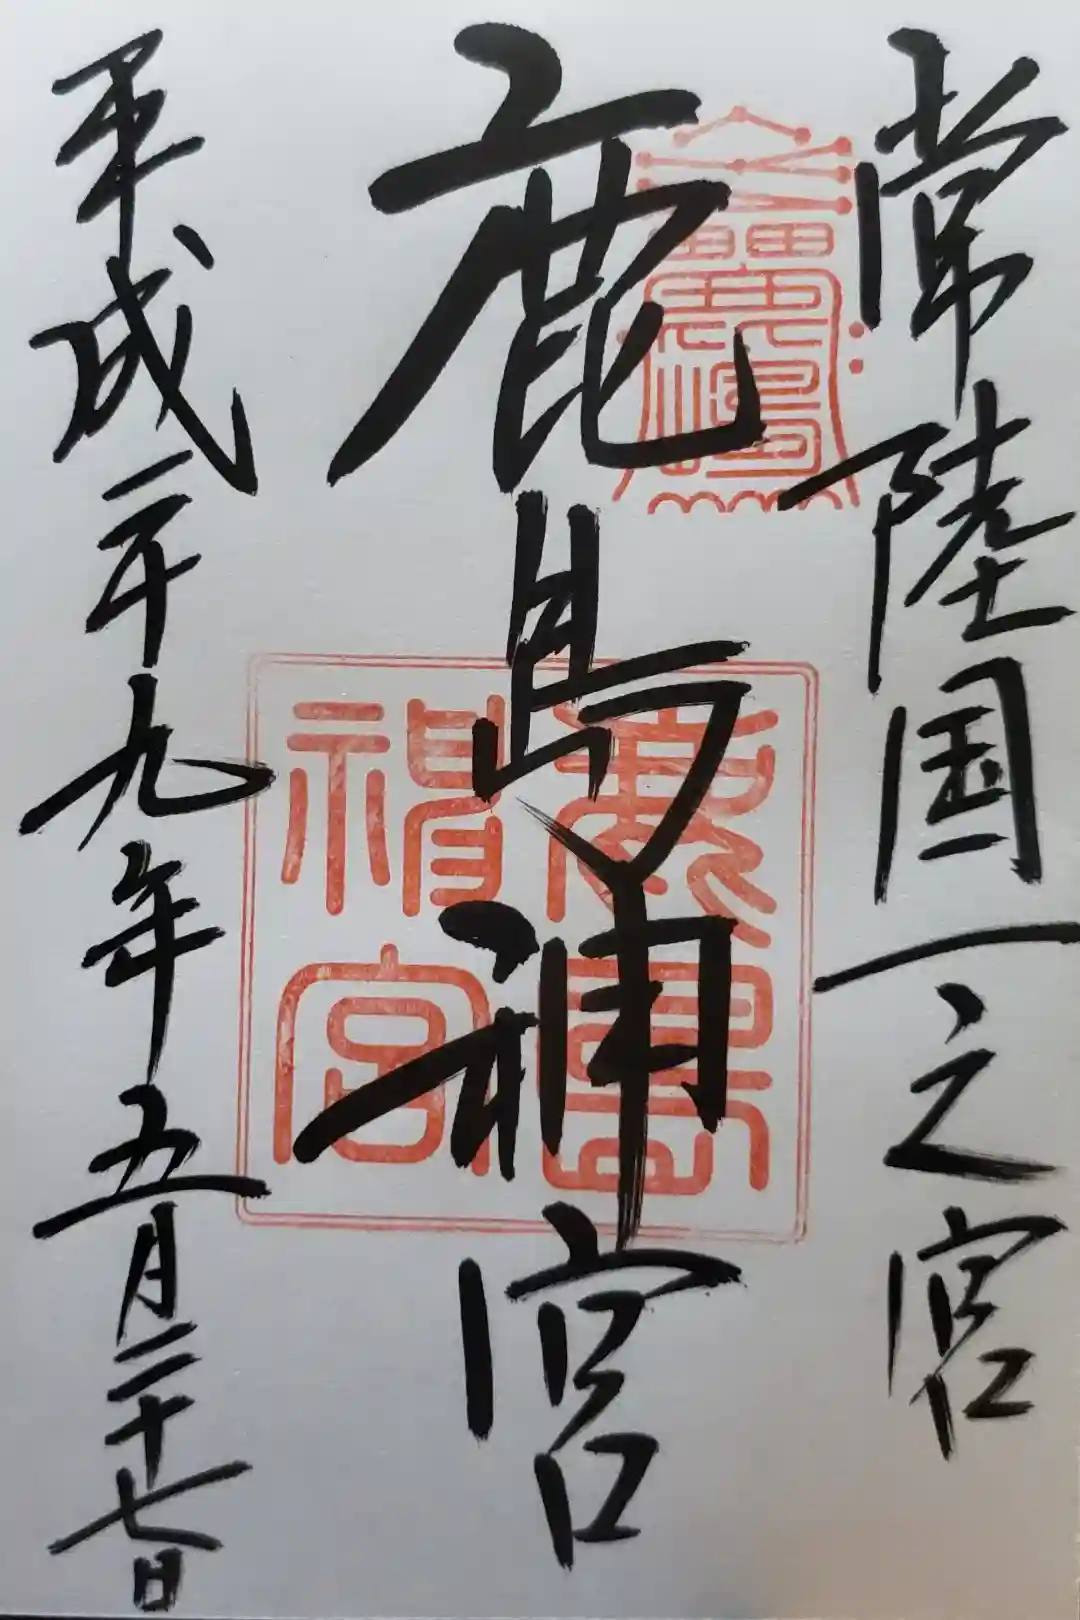 常陸国一之宮
鹿島神宮
平成二十九年五月二十七日
鹿島
神宮